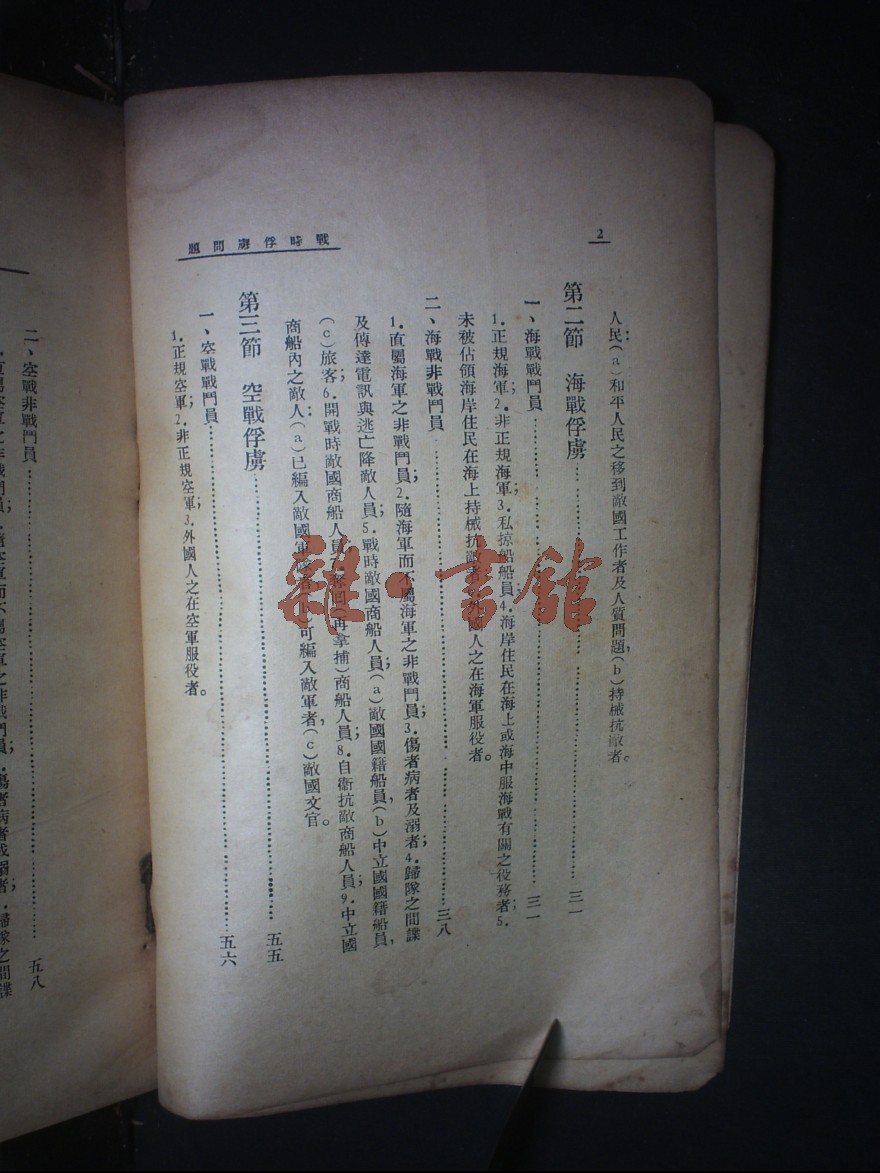 題問虜俘時戰
2
人民：(a)和平人民之移到敵國工作者及人質問題，(b)持械抗敵者。
第二節　海戰俘虜……三一
一、海戰戰鬥員……三一
1.正規海軍；2.非正規海軍；3.私掠船船員；4.海岸住民在海上或海中服海戰有關之役務者；5.
未被佔領海岸住民在海上持械抗敵者；外國人之在海軍服役者。
二、海戰非戰鬥員……三八
1.直屬海軍之非戰鬥員；2.隨海軍而不屬海軍之非戰鬥員；3.傷者病者及溺者；4.歸隊之間諜
及傳達電訊與逃亡降敵人員；5.戰時敵國商船人員：(a)敵國國籍船員，(b)中立國國籍船員，
(c)旅客；6.開戰時敵國商船人員；奪回(再拿捕)商船人員；8.自衞抗敵商船人員；9.中立國
商船內之敵人：(a)已編入敵國軍隊者，可編入敵軍者，(c)敵國文官。
第三節　空戰俘虜……五五
一、空戰戰鬥員……五六
1.正規空軍；2.非正規空軍；3.外國人之在空軍服役者。
二、空戰非戰鬥員……五八
直屬空軍之非戰鬥員；隨空軍而不屬空軍之非戰鬥員；傷者病者或溺者；歸隊之間諜
雜·書館